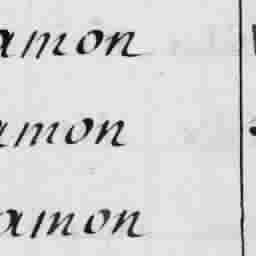 amon
amon
amon